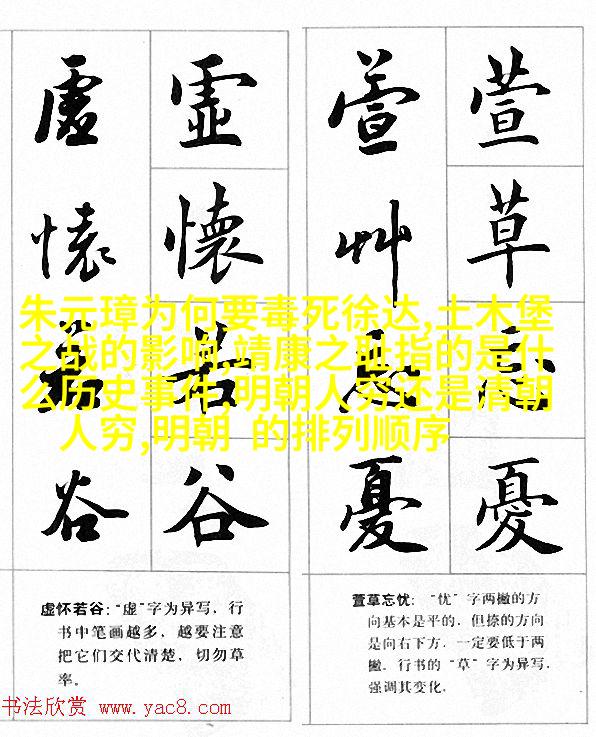 虛懷若谷
虛懷若谷
萱艸忘憂
萱草忘憂
朱元璋为何要毒死徐达,土木堡
之战的影响,靖康之耻指的是什
么历史事件,明朝人穷还是清朝
人穷,明朝 的排列顺序
虚怀若谷:“虚”字为异写,行
书中笔画越多,越要注意
把它们交代清楚,切勿草
率。
萱草忘忧:“忧”字两撇的方
向基本是平的,但捺的方向
是向右下方,一定要低于两
撇。行书的“草”字为异写,
强调其变化。
书法欣赏 www.yac8.com